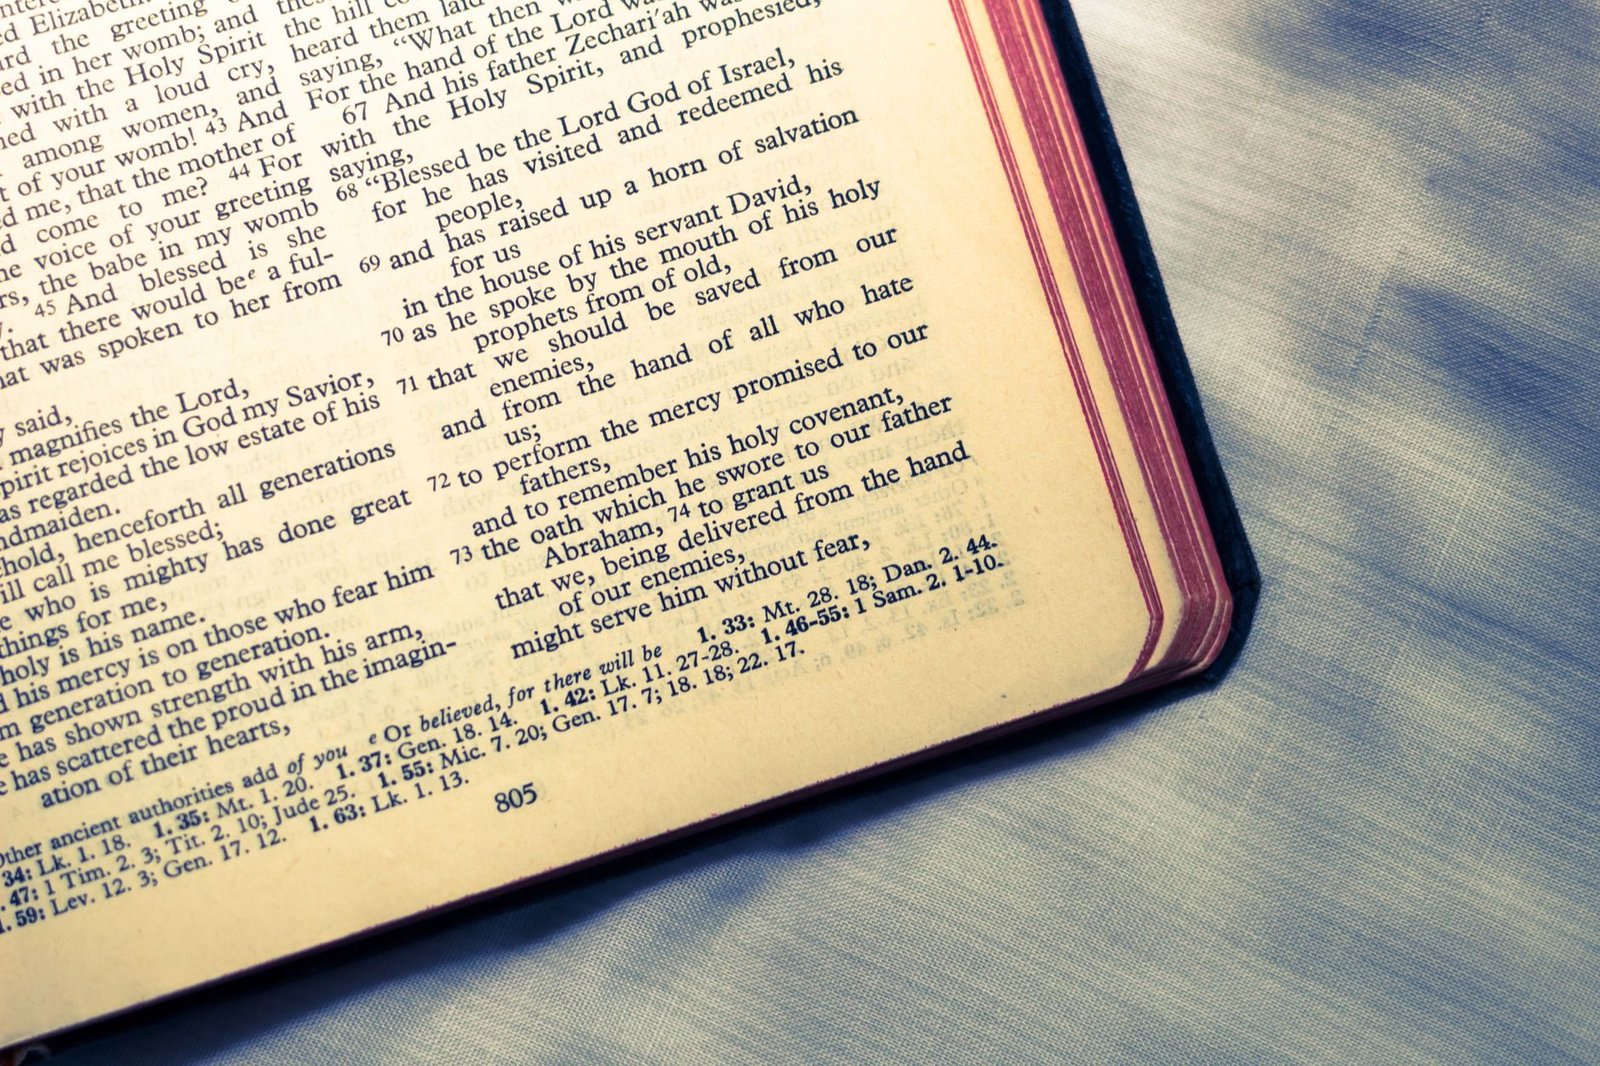 ed Elizabeth
the greeting
ed in her womb; and
with the Holy Spirit
with a loud cry,
among women, and
of your womb! 43 And
me, that the mother of
come to me? 44 For
voice of your greeting
the babe in my womb
45 And blessed is she
that there would beᵉ a ful-
was spoken to her from
said,
magnifies the Lord,
rejoices in God my Savior,
regarded the low estate of his
henceforth all generations
call me blessed;
who is mighty has done great
things for me,
holy is his name.
his mercy is on those who fear him
generation to generation.
has shown strength with his arm,
has scattered the proud in the imagin-
ation of their hearts,
the hill
heard them laid
saying, "What then
For the hand of the Lord
67 And his father Zechari′ah
with the Holy Spirit, and prophesied,
saying,
68 "Blessed be the Lord God of Israel,
for he has visited and redeemed his
people,
69 and has raised up a horn of salvation
for us
in the house of his servant David,
70 as he spoke by the mouth of his holy
prophets from of old,
71 that we should be saved from our
enemies,
and from the hand of all who hate
us;
72 to perform the mercy promised to our
fathers,
and to remember his holy covenant,
73 the oath which he swore to our father
Abraham, 74 to grant us
that we, being delivered from the hand
of our enemies,
might serve him without fear,
Other ancient authorities add of you e Or believed, for there will be 1. 33: Mt. 28. 18; Dan. 2. 44.
34: Lk. 1. 18. 1. 35: Mt. 1. 20. 1. 37: Gen. 18. 14. 1. 42: Lk. 11. 27-28. 1. 46-55: 1 Sam. 2. 1-10.
47: 1 Tim. 2. 3; Tit. 2. 10; Jude 25. 1. 55: Mic. 7. 20; Gen. 17. 7; 18. 18; 22. 17.
1. 59: Lev. 12. 3; Gen. 17. 12. 1. 63: Lk. 1. 13.
805